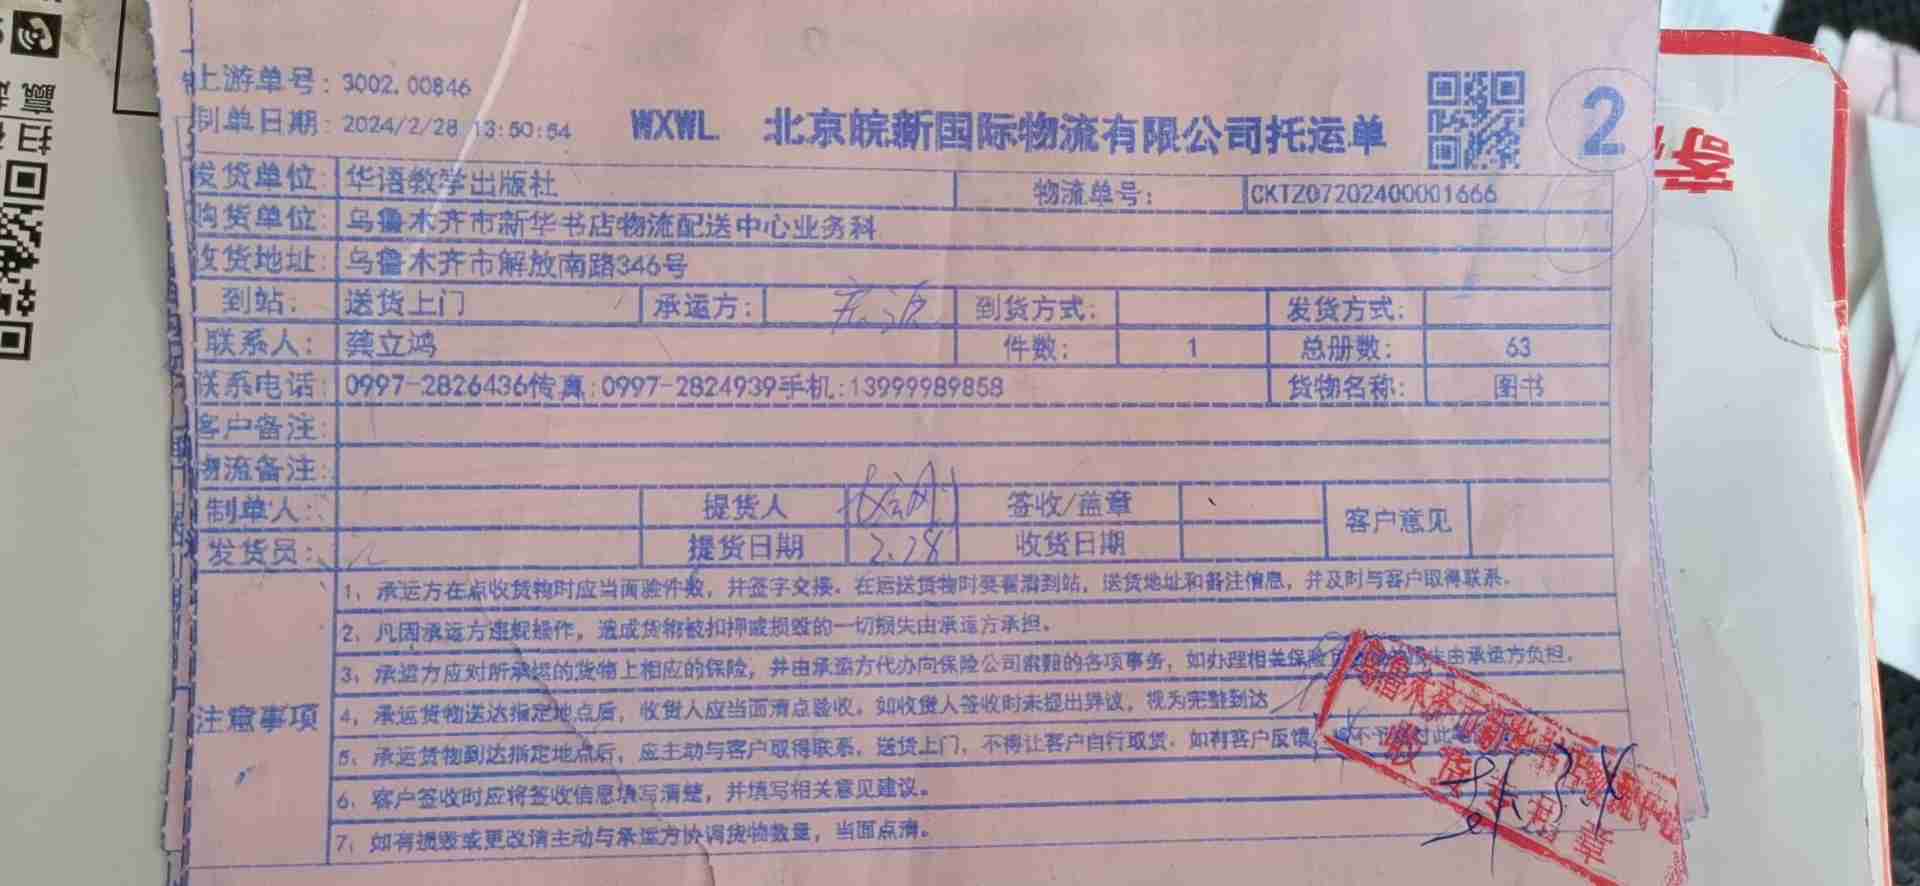 上游单号: 3002.00846
制单日期: 2024/2/28 13:50:54
WXWL 北京皖新国际物流有限公司托运单
2
发货单位: 华语教学出版社 物流单号: CKTZ07202400001666
购货单位: 乌鲁木齐市新华书店物流配送中心业务科
收货地址: 乌鲁木齐市解放南路346号
到站: 送货上门 承运方: 到货方式: 发货方式:
联系人: 龚立鸿 件数: 1 总册数: 63
联系电话: 0997-2826436传真:0997-2824939手机:13999989858 货物名称: 图书
客户备注:
物流备注:
制单人: 提货人 签收/盖章 客户意见
发货员: 提货日期 2.28 收货日期
注意事项
1、承运方在点收货物时应当面验件数，并签字交接。在运送货物时要看清到站，送货地址和备注信息，并及时与客户取得联系。
2、凡因承运方违规操作，造成货物被扣押或损毁的一切损失由承运方承担。
3、承运方应对所承运的货物上相应的保险，并由承运方代办向保险公司索赔的各项事务，如办理相关保险 由承运方负担。
4、承运货物送达指定地点后，收货人应当面清点验收。如收货人签收时未提出异议，视为完整到达
5、承运货物到达指定地点后，应主动与客户取得联系，送货上门，不得让客户自行取货。如有客户反馈，
6、客户签收时应将签收信息填写清楚，并填写相关意见建议。
7、如有损毁或更改请主动与承运方协调货物数量，当面点清。